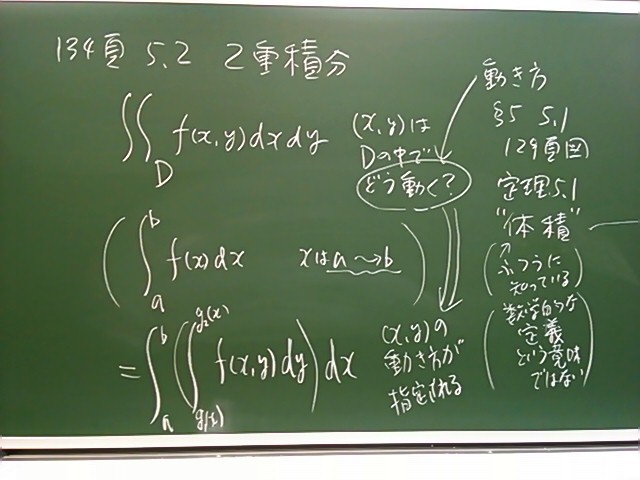 134頁 5.2 2重積分
∬_D f(x,y)dxdy
(x,y)は
Dの中で
どう動く?
( ∫_a^b f(x)dx xはa→b )
= ∫_a^b ( ∫_{g₁(x)}^{g₂(x)} f(x,y)dy ) dx
(x,y)の
動き方が
指定される
動き方
§5 5.1
129頁図
定理5.1
"体積"
(ふつうに
知っている)
(数学的な
定義
という意味
ではない)